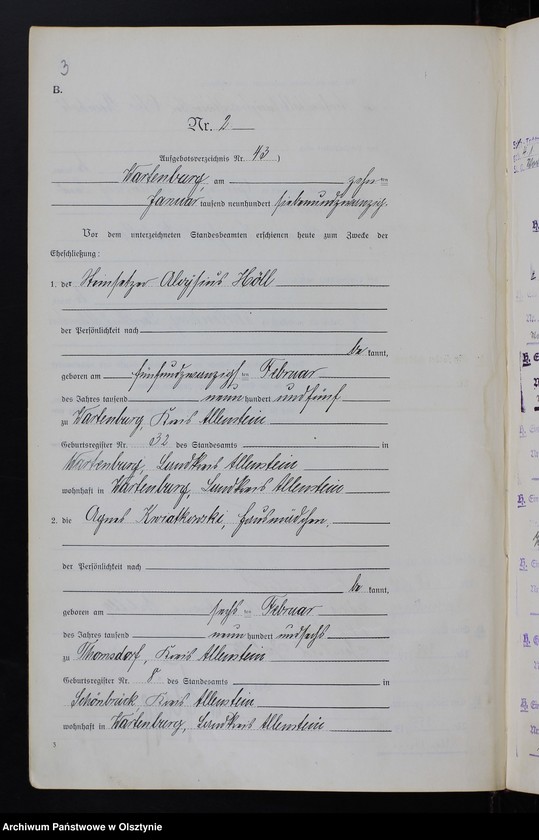 3
B.
Nr. 2
Aufgebotsverzeichnis Nr. 43)
Wartenburg, am zehnten
Januar tausend neunhundert siebenundzwanzig.
Vor dem unterzeichneten Standesbeamten erschienen heute zum Zwecke der
Eheschließung:
1. der Steinsetzer Aloysius Höll
der Persönlichkeit nach
be kannt,
geboren am fünfundzwanzigsten Februar
des Jahres tausend neun hundert undfünf
zu Wartenburg, Kreis Allenstein
Geburtsregister Nr. 32 des Standesamts in
Wartenburg, Landkreis Allenstein
wohnhaft in Wartenburg, Landkreis Allenstein
2. die Agnes Kwiatkowski, Hausmädchen,
der Persönlichkeit nach
be kannt,
geboren am sechsten Februar
des Jahres tausend neun hundert undsechs
zu Thomsdorf, Kreis Allenstein
Geburtsregister Nr. 8 des Standesamts in
Schönbrück Kreis Allenstein
wohnhaft in Wartenburg, Landkreis Allenstein
Archiwum Państwowe w Olsztynie